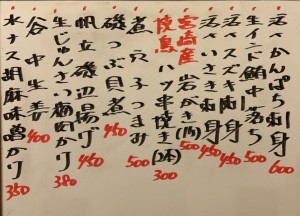 活かんぱち刺身 600
生インド鮪中落ち 500
活スズキ刺身 450
活いさき刺身 450
宮崎産岩がき(内) 500
焼鳥ハツ串焼き(2本) 300
煮穴子つまみ 500
磯つぶ貝煮 450
帆立磯辺揚げ 450
生じゅんさい梅肉かけ 380
谷中生姜 400
水ナス胡麻味噌かけ 350